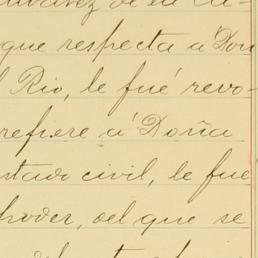 que respecta á Don
Rio, le fué revo-
refiere á Doña
stado civil, le fué
poder, del que se